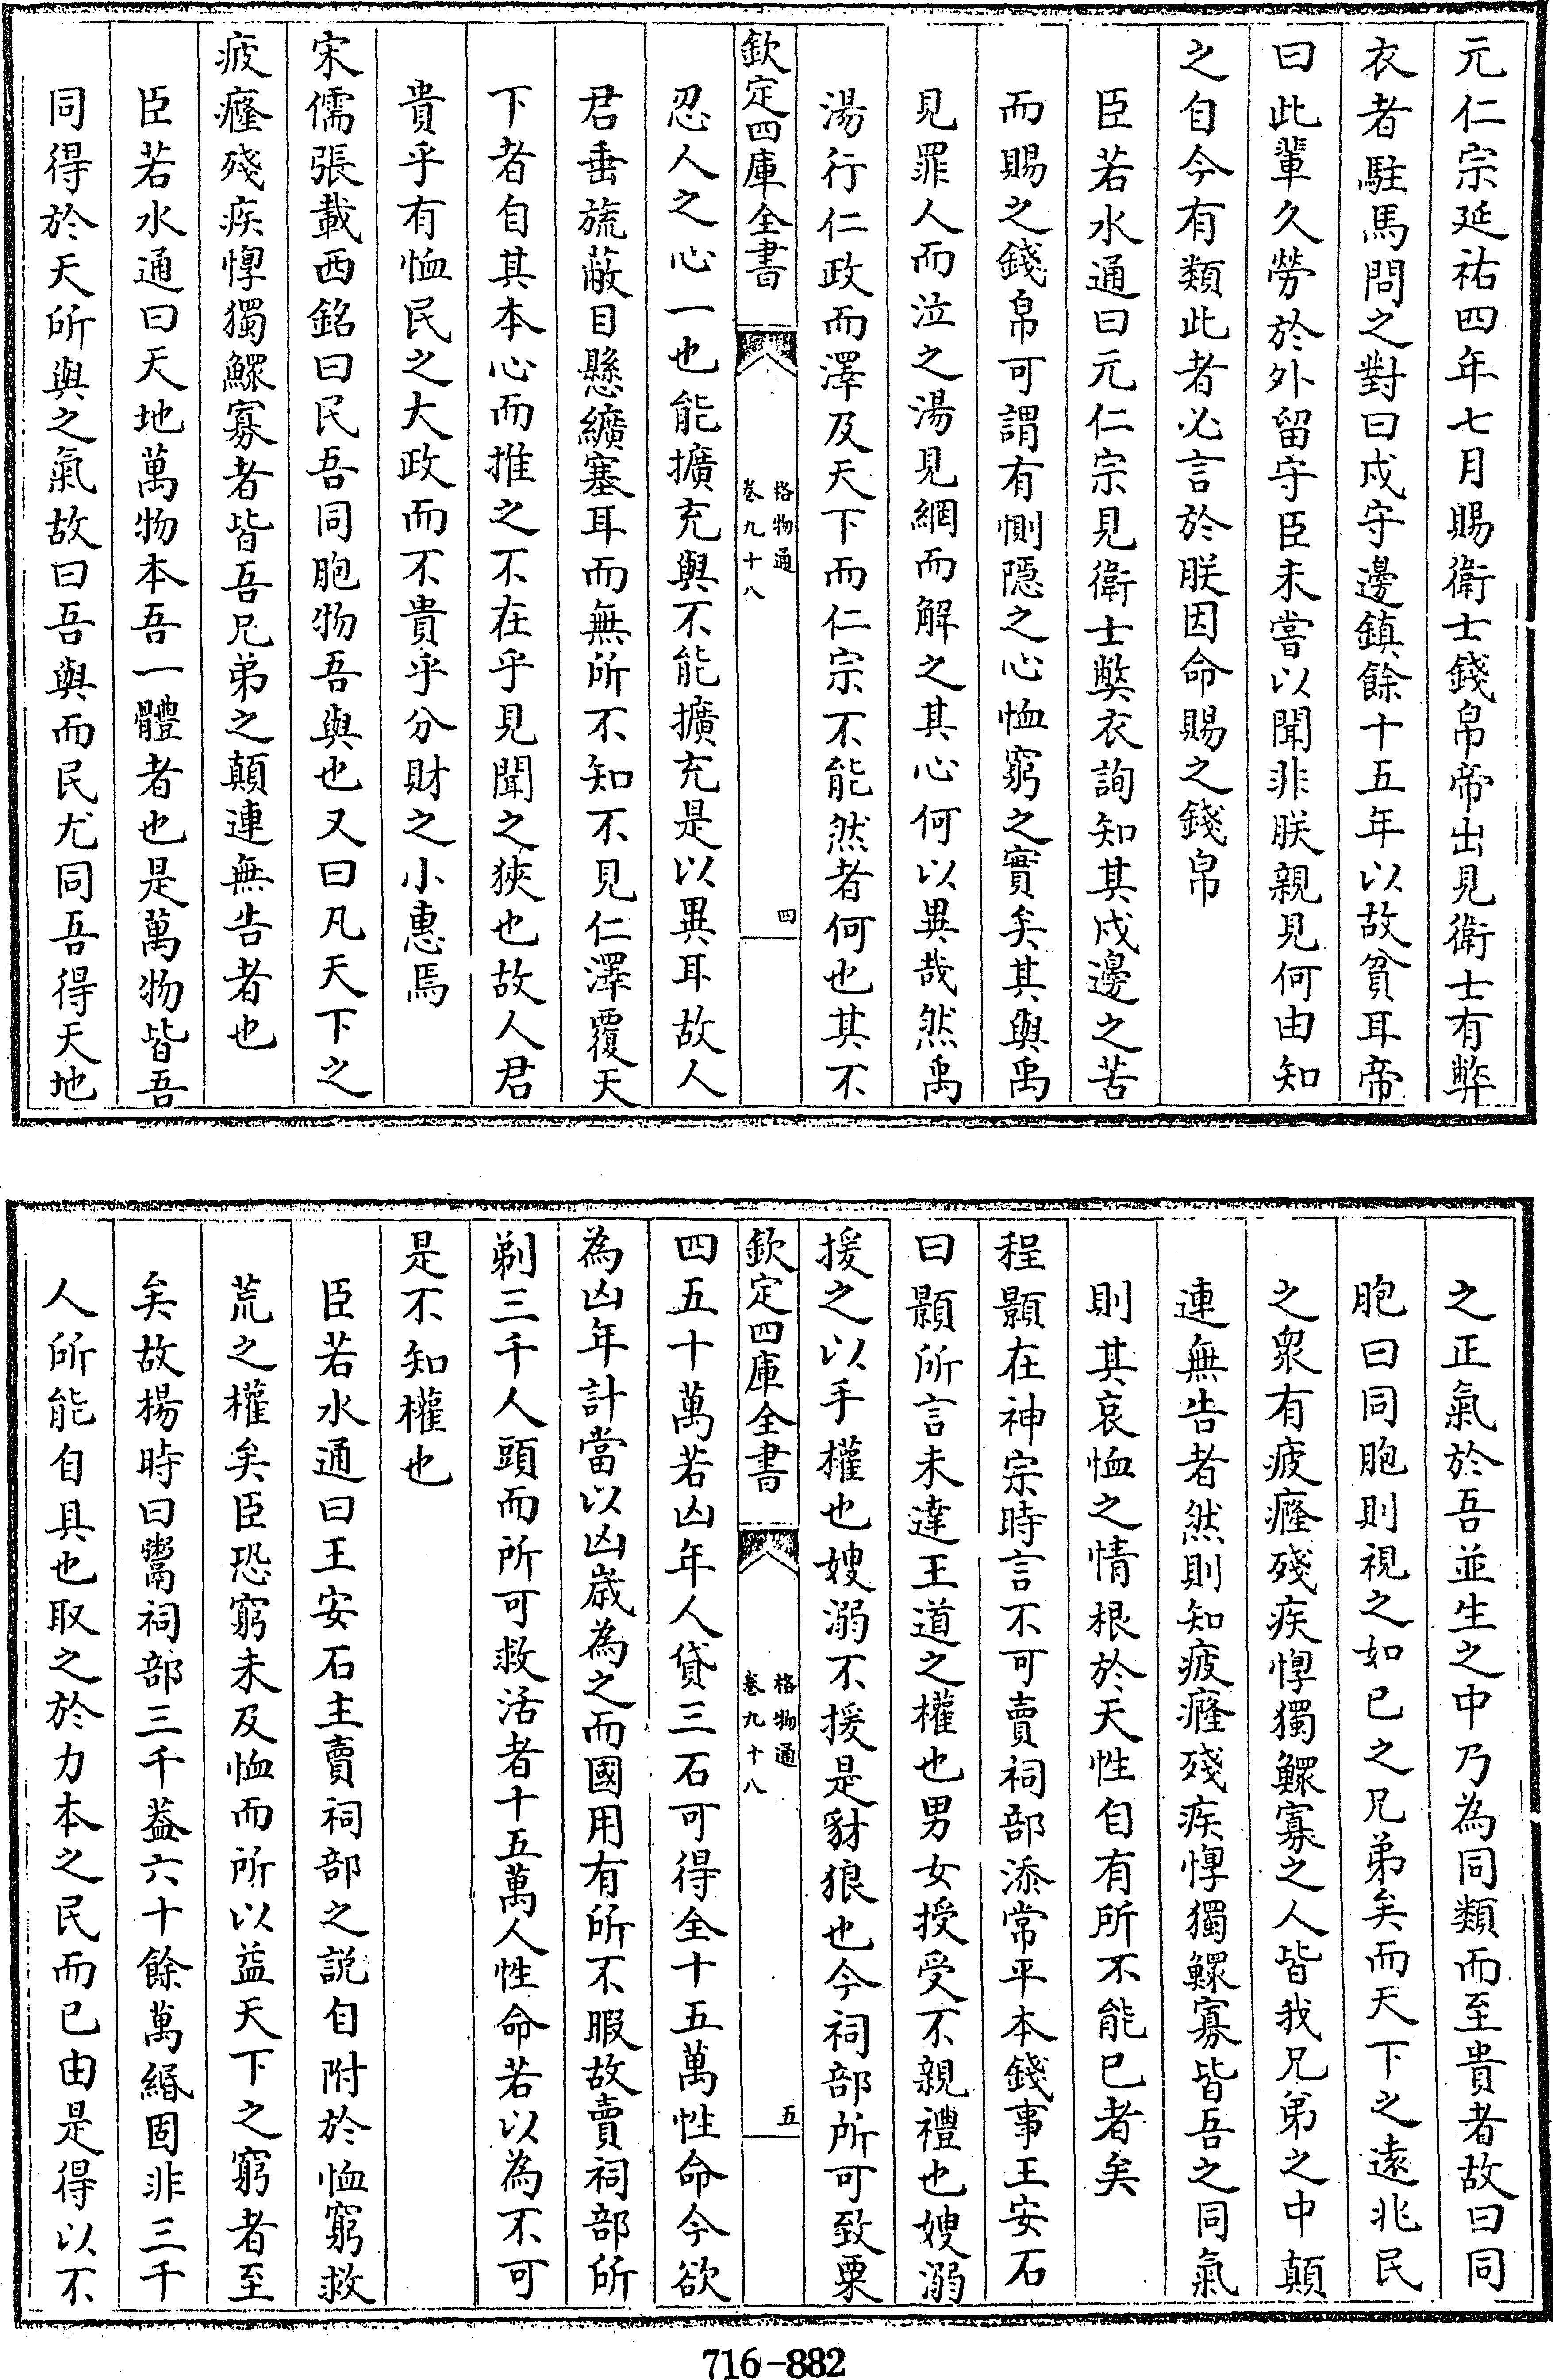 元仁宗延祐四年七月賜衛士錢帛帝出見衛士有弊
衣者駐馬問之對曰戍守邊鎮餘十五年以故貧耳帝
曰此輩久勞於外留守臣未嘗以聞非朕親見何由知
之自今有類此者必言於朕因命賜之錢帛
臣若水通曰元仁宗見衛士弊衣詢知其戍邊之苦
而賜之錢帛可謂有惻隠之心恤窮之實矣其與禹
見罪人而泣之湯見網而解之其心何以異哉然禹
湯行仁政而澤及天下而仁宗不能然者何也其不
欽定四庫全書
格物通
卷九十八
四
忍人之心一也能擴充與不能擴充是以異耳故人
君垂旒蔽目懸纊塞耳而無所不知不見仁澤覆天
下者自其本心而推之不在乎見聞之狹也故人君
貴乎有恤民之大政而不貴乎分財之小惠焉
宋儒張載西銘曰民吾同胞物吾與也又曰凡天下之
疲癃殘疾惸獨鰥寡者皆吾兄弟之顛連無告者也
臣若水通曰天地萬物本吾一體者也是萬物皆吾
同得於天所與之氣故曰吾與而民尤同吾得天地
之正氣於吾並生之中乃為同類而至貴者故曰同
胞曰同胞則視之如己之兄弟矣而天下之遠兆民
之衆有疲癃殘疾惸獨鰥寡之人皆我兄弟之中顛
連無告者然則知疲癃殘疾惸獨鰥寡皆吾之同氣
則其哀恤之情根於天性自有所不能已者矣
程顥在神宗時言不可賣祠部添常平本錢事王安石
曰顥所言未達王道之權也男女授受不親禮也嫂溺
援之以手權也嫂溺不援是豺狼也今祠部所可致粟
欽定四庫全書
格物通
卷九十八
五
四五十萬若凶年人貸三石可得全十五萬性命今欲
為凶年計當以凶歲為之而國用有所不暇故賣祠部所
剃三千人頭而所可救活者十五萬人性命若以為不可
是不知權也
臣若水通曰王安石主賣祠部之說自附於恤窮救
荒之權矣臣恐窮未及恤而所以益天下之窮者至
矣故楊時曰鬻祠部三千葢六十餘萬緡固非三千
人所能自具也取之於力本之民而已由是得以不
716-882